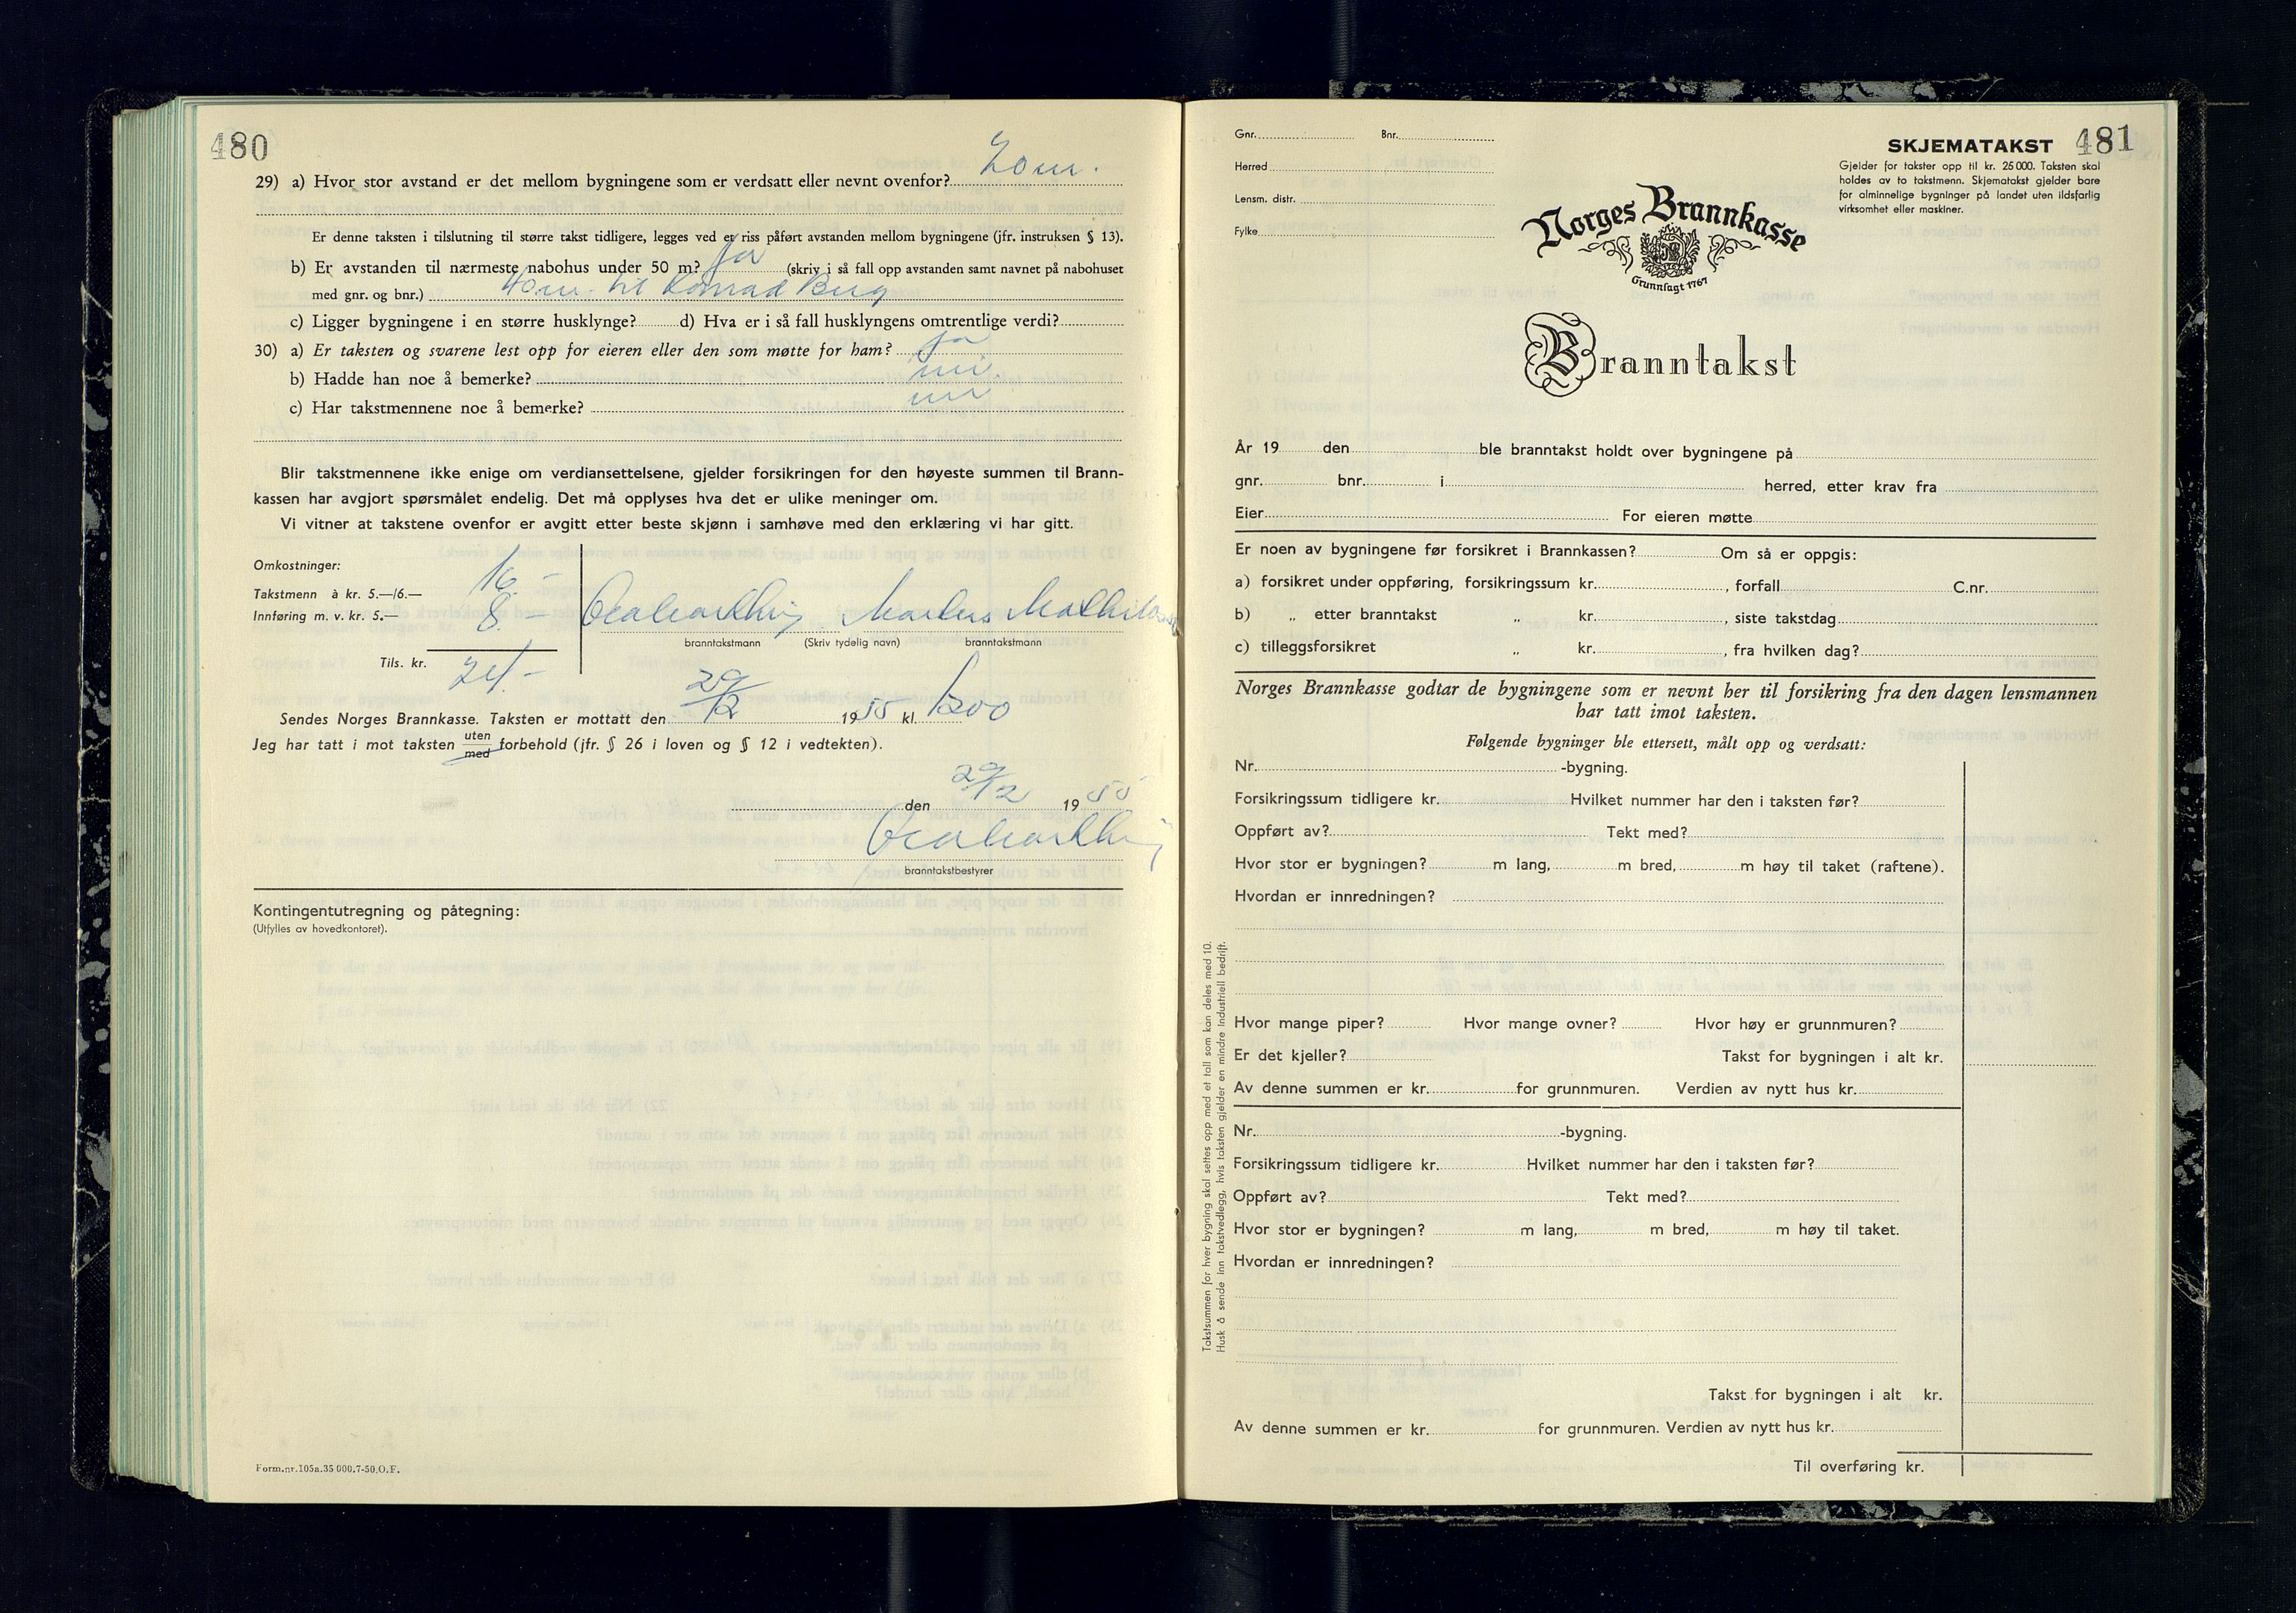 480
29) a) Hvor stor avstand er det mellom bygningene som er verdsatt eller nevnt ovenfor? 20 m.
Er denne taksten i tilslutning til større takst tidligere, legges ved et riss påført avstanden mellom bygningene (jfr. instruksen § 13).
b) Er avstanden til nærmeste nabohus under 50 m? ja (skriv i så fall opp avstanden samt navnet på nabohuset
med gnr. og bnr.) 40 m. til Konrad Berg
c) Ligger bygningene i en større husklynge? d) Hva er i så fall husklyngens omtrentlige verdi?
30) a) Er taksten og svarene lest opp for eieren eller den som møtte for ham? ja
b) Hadde han noe å bemerke? nei.
c) Har takstmennene noe å bemerke? nei
Blir takstmennene ikke enige om verdiansettelsene, gjelder forsikringen for den høyeste summen til Brann-
kassen har avgjort spørsmålet endelig. Det må opplyses hva det er ulike meninger om.
Vi vitner at takstene ovenfor er avgitt etter beste skjønn i samhøve med den erklæring vi har gitt.
Omkostninger:
Takstmenn à kr. 5.—/6.— 16.-
Innføring m. v. kr. 5.— 8.-
Markus
branntakstmann (Skriv tydelig navn) branntakstmann
Tils. kr. 24.-
Sendes Norges Brannkasse. Taksten er mottatt den 29/12 1955 kl. 1200
Jeg har tatt i mot taksten uten med forbehold (jfr. § 26 i loven og § 12 i vedtekten).
den 29/12 1955
branntakstbestyrer
Kontingentutregning og påtegning:
(Utfylles av hovedkontoret).
Form.nr.105a.35 000.7-50.O.F.
Gnr. Bnr.
Herred
Lensm. distr.
Fylke
SKJEMATAKST 481
Gjelder for takster opp til kr. 25 000. Taksten skal
holdes av to takstmenn. Skjematakst gjelder bare
for alminnelige bygninger på landet uten ildsfarlig
virksomhet eller maskiner.
Norges Brannkasse
Grunnlagt 1767
Branntakst
År 19 den ble branntakst holdt over bygningene på
gnr. bnr. i herred, etter krav fra
Eier For eieren møtte
Er noen av bygningene før forsikret i Brannkassen? Om så er oppgis:
a) forsikret under oppføring, forsikringssum kr. , forfall C.nr.
b) „ etter branntakst „ kr. , siste takstdag
c) tilleggsforsikret „ kr. , fra hvilken dag?
Norges Brannkasse godtar de bygningene som er nevnt her til forsikring fra den dagen lensmannen
har tatt imot taksten.
Følgende bygninger ble ettersett, målt opp og verdsatt:
Nr. -bygning.
Forsikringssum tidligere kr. Hvilket nummer har den i taksten før?
Oppført av? Tekt med?
Hvor stor er bygningen? m lang, m bred, m høy til taket (raftene).
Hvordan er innredningen?
Hvor mange piper? Hvor mange ovner? Hvor høy er grunnmuren?
Er det kjeller? Takst for bygningen i alt kr.
Av denne summen er kr. for grunnmuren. Verdien av nytt hus kr.
Nr. -bygning.
Forsikringssum tidligere kr. Hvilket nummer har den i taksten før?
Oppført av? Tekt med?
Hvor stor er bygningen? m lang, m bred, m høy til taket.
Hvordan er innredningen?
Takst for bygningen i alt kr.
Av denne summen er kr. for grunnmuren. Verdien av nytt hus kr.
Til overføring kr.
Takstsummen for hver bygning skal settes opp med et tall som kan deles med 10.
Husk å sende inn takstvedlegg, hvis taksten gjelder en mindre industriell bedrift.